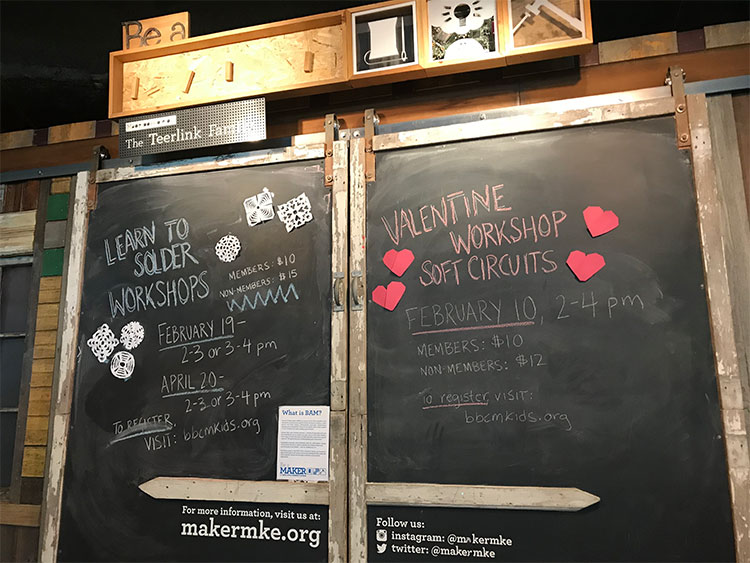 Be a
The Teerlink Fam
LEARN TO
SOLDER
WORKSHOPS
MEMBERS: $10
NON-MEMBERS: $15
FEBRUARY 19-
2-3 or 3-4 pm
APRIL 20-
2-3 or 3-4 pm
TO REGISTER,
VISIT: bbcmkids.org
What is BAM?
MAKER
For more information, visit us at:
makermke.org
VALENTINE
WORKSHOP
SOFT CIRCUITS
FEBRUARY 10, 2-4 pm
MEMBERS: $10
NON-MEMBERS: $12
To register, VISIT:
bbcmkids.org
Follow us:
instagram: @makermke
twitter: @makermke